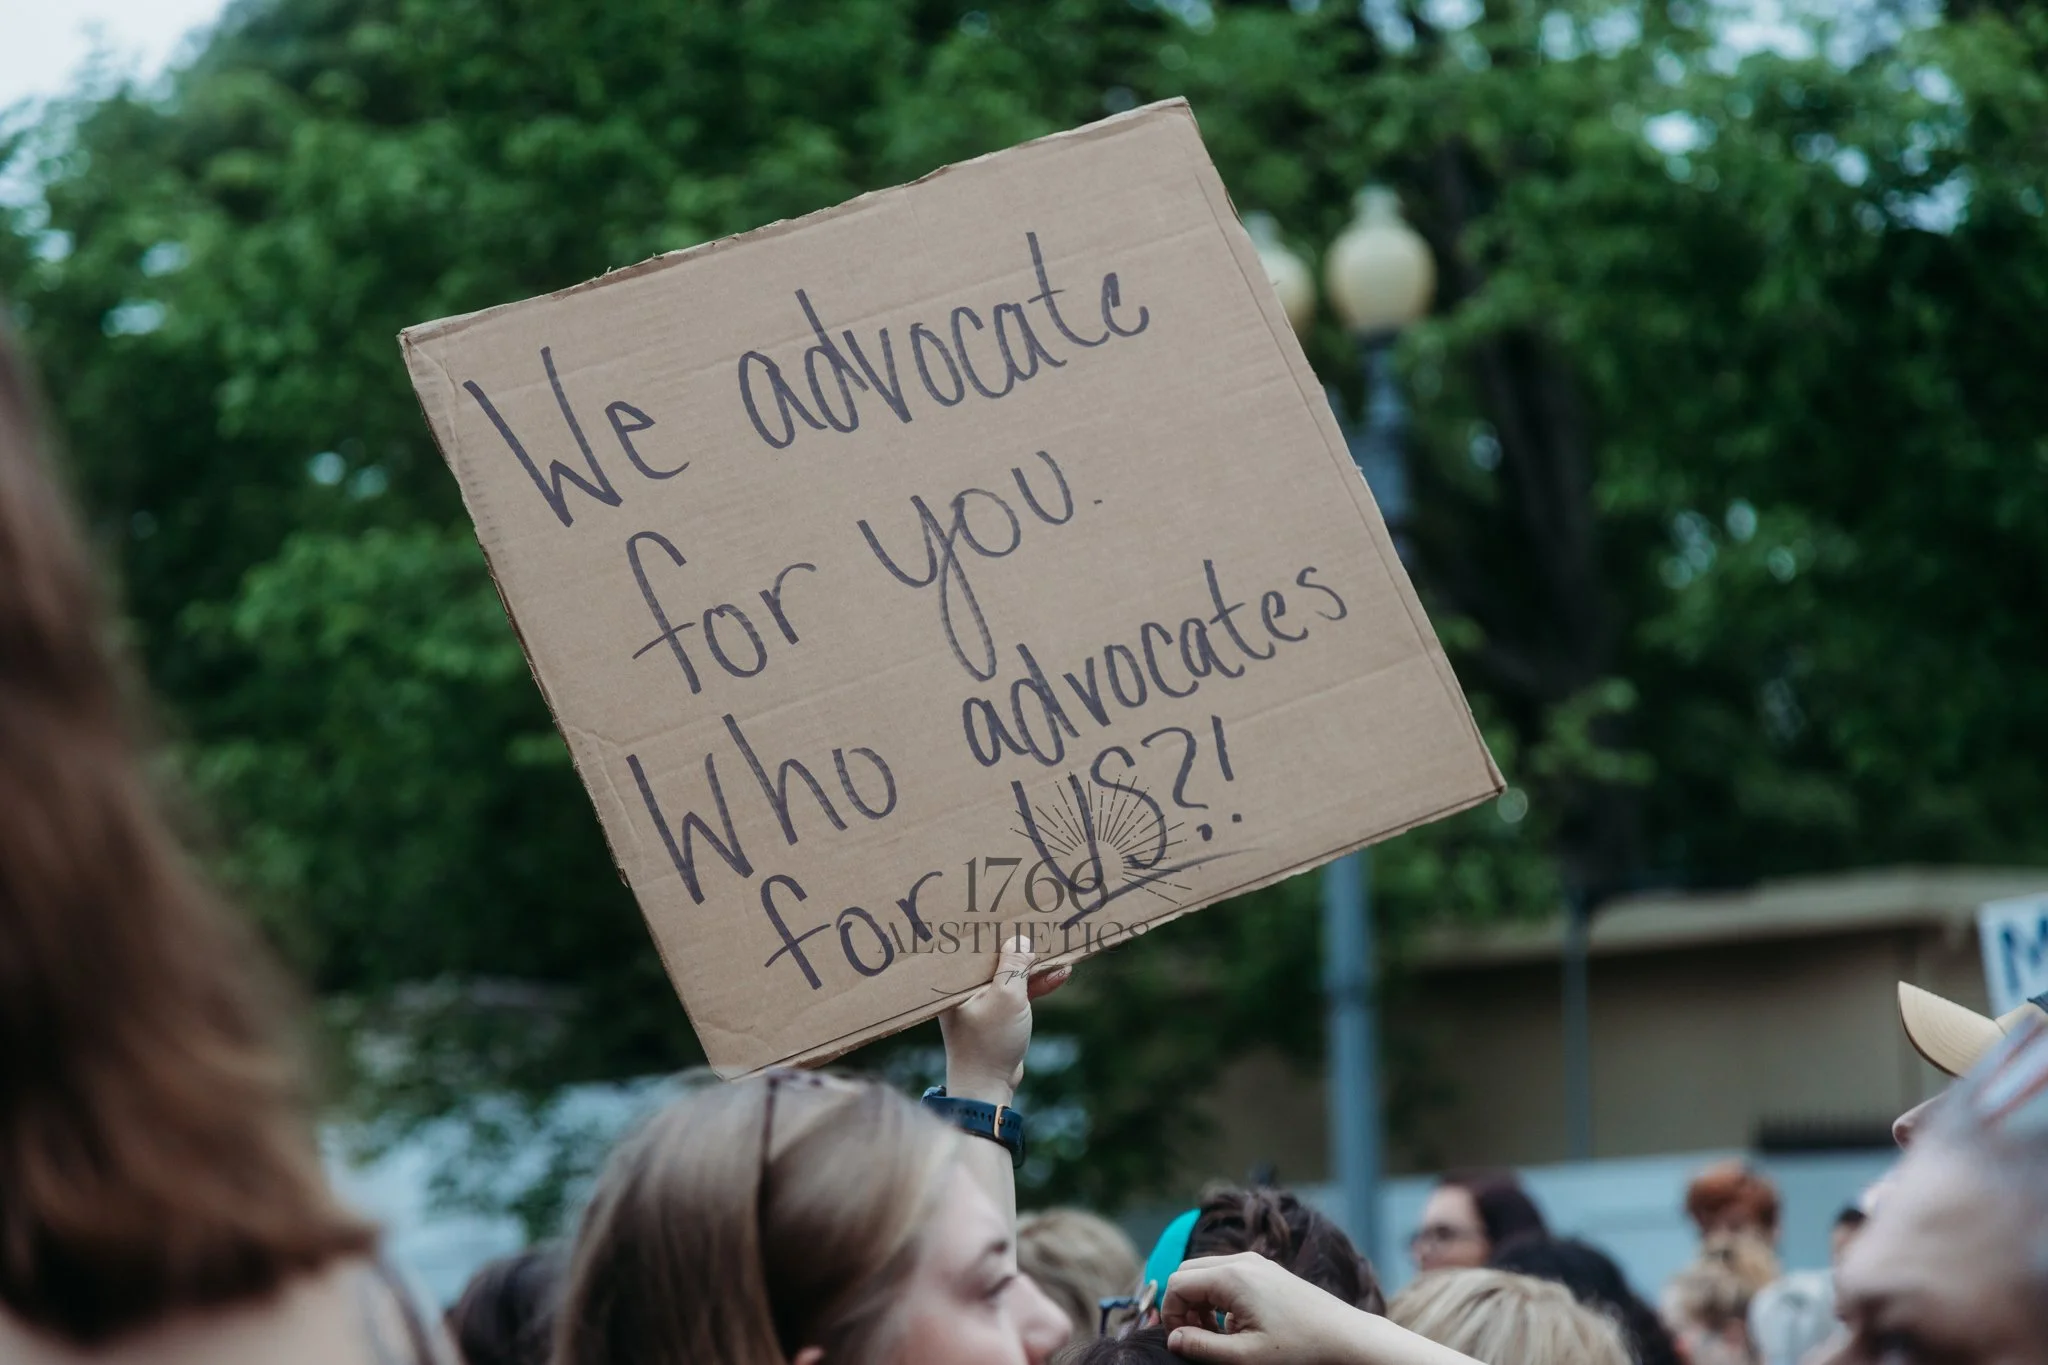 We advocate
for you.
Who advocates
for US?!
1766
AESTHETICS
photo
M